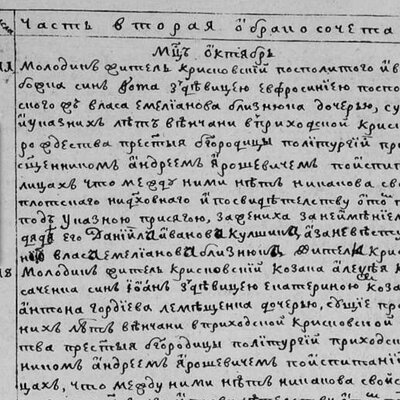 Часть вторая ѡ бракосочета
Мцъ Октябръ
Молодикъ житель крисковскїй посполитого Ив
син Ѳома здѣвицею евфросинїею поспо
ского дъ власа емелїанова близнюка дочерью, су
Иуказнихъ лѣтъ вѣнчани в приходской криск
рождества престїя бгородици по литургїи пр
сщенникомъ андреемъ Ярошевичемъ по испит
лицахъ что между ними нѣтъ никакова св
плотскаго ни духовнаго и по свидѣтелству
подъ указною присягою, за жениха
дядѣ его Данїила Иванова Кулшина, а за невѣсту
власа емелїанова близнюка жителя Крис
18 Молодикъ житель крисковскїй козака алеѯѣя
саченка син Іоанъ здѣвицею екатериною коза
антона гордѣева лемещенка дочерью, сущїе
нихъ лѣтъ вѣнчани в приходской крисковской
тва престїя бгородици по литургїи приходск
никомъ андреемъ Ярошевичемъ по испитанїи
цахъ, что между ними нѣтъ никакова свойс